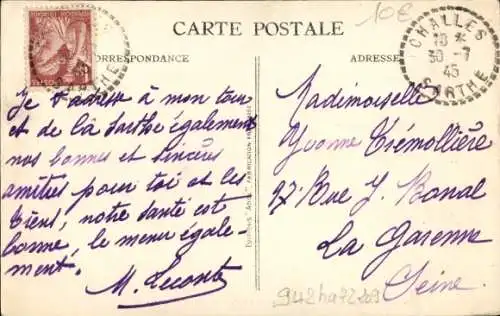 CARTE POSTALE
10€
CORRESPONDANCE
ADRESSE
CHALLES
30 -
45
SARTHE
Je t'adresse à mon tour
et de la Sarthe également
nos bonnes et sincères
amitiés pour toi et les
tiens, notre santé est
bonne, le menu égale-
ment.
M. Leconte
Mademoiselle
Yvonne Trémollière
97 Rue J. Bonal
La Garenne
Seine